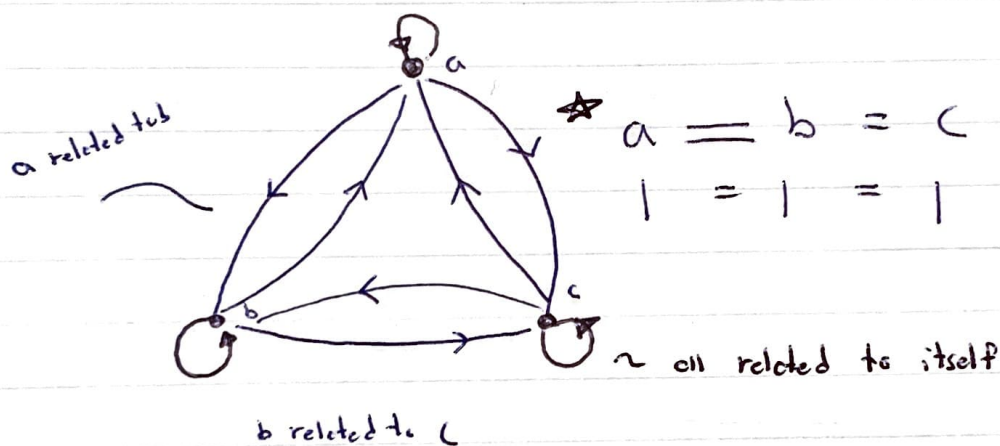 a
a related to b
☆ a = b = c
1 = 1 = 1
b
c
~ all related to itself
b related to c